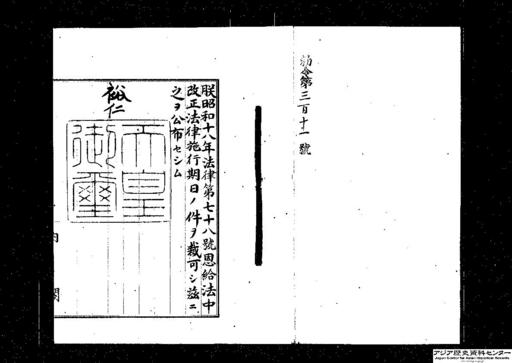 勅令第三百十一號
朕昭和十八年法律第七十八號恩給法中
改正法律施行期日ノ件ヲ裁可シ茲ニ
之ヲ公布セシム
裕仁
天皇御璽
内閣
アジア歴史資料センター
Japan Center for Asian Historical Records